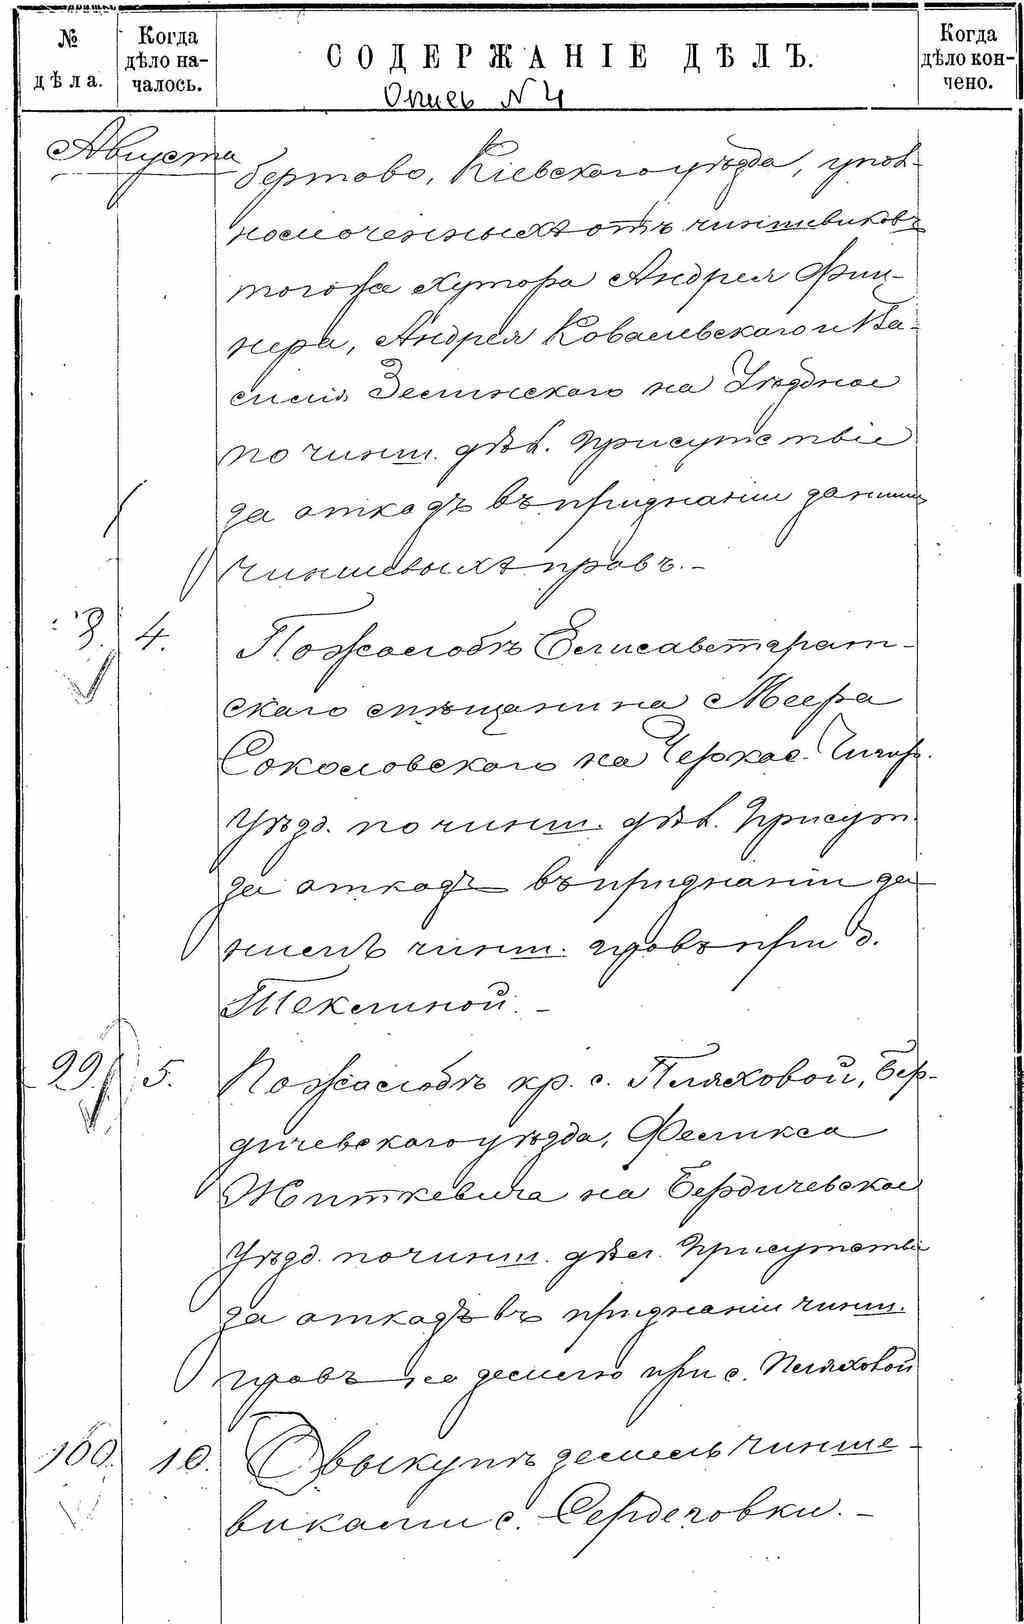 № дѣла.
Когда дѣло началось.
СОДЕРЖАНІЕ ДѢЛЪ.
Когда дѣло кончено.
Опись N 4
Августа
бертово, Кіевскаго уѣзда, упол-
номоченныхъ отъ чиншевиковъ
того же хутора Андрея Фиш-
нера, Андрея Ковалевскаго и Ва-
силія Зелинскаго на Уѣздное
по чинш. дѣл. Присутствіе
за отказъ въ признаніи за ними
чиншевыхъ правъ.-
3. 4. По жалобѣ Елисаветград-
скаго мѣщанина Меера
Соколовскаго на Черкас. Чигир.
Уѣзд. по чинш. дѣл. Присут.
за отказъ въ признаніи за
нимъ чинш. правъ при д.
Теклиной. -
29. 5. По жалобѣ кр. с. Пляховой, Бер-
дичевскаго уѣзда, Феликса
Житкевича на Бердичевское
Уѣзд. по чинш. дѣл. Присутствіе
за отказъ въ признаніи чинш.
правъ на землю при с. Пляховой
100. 10. О выкупѣ земель чинше-
виками с. Сердеговки. -